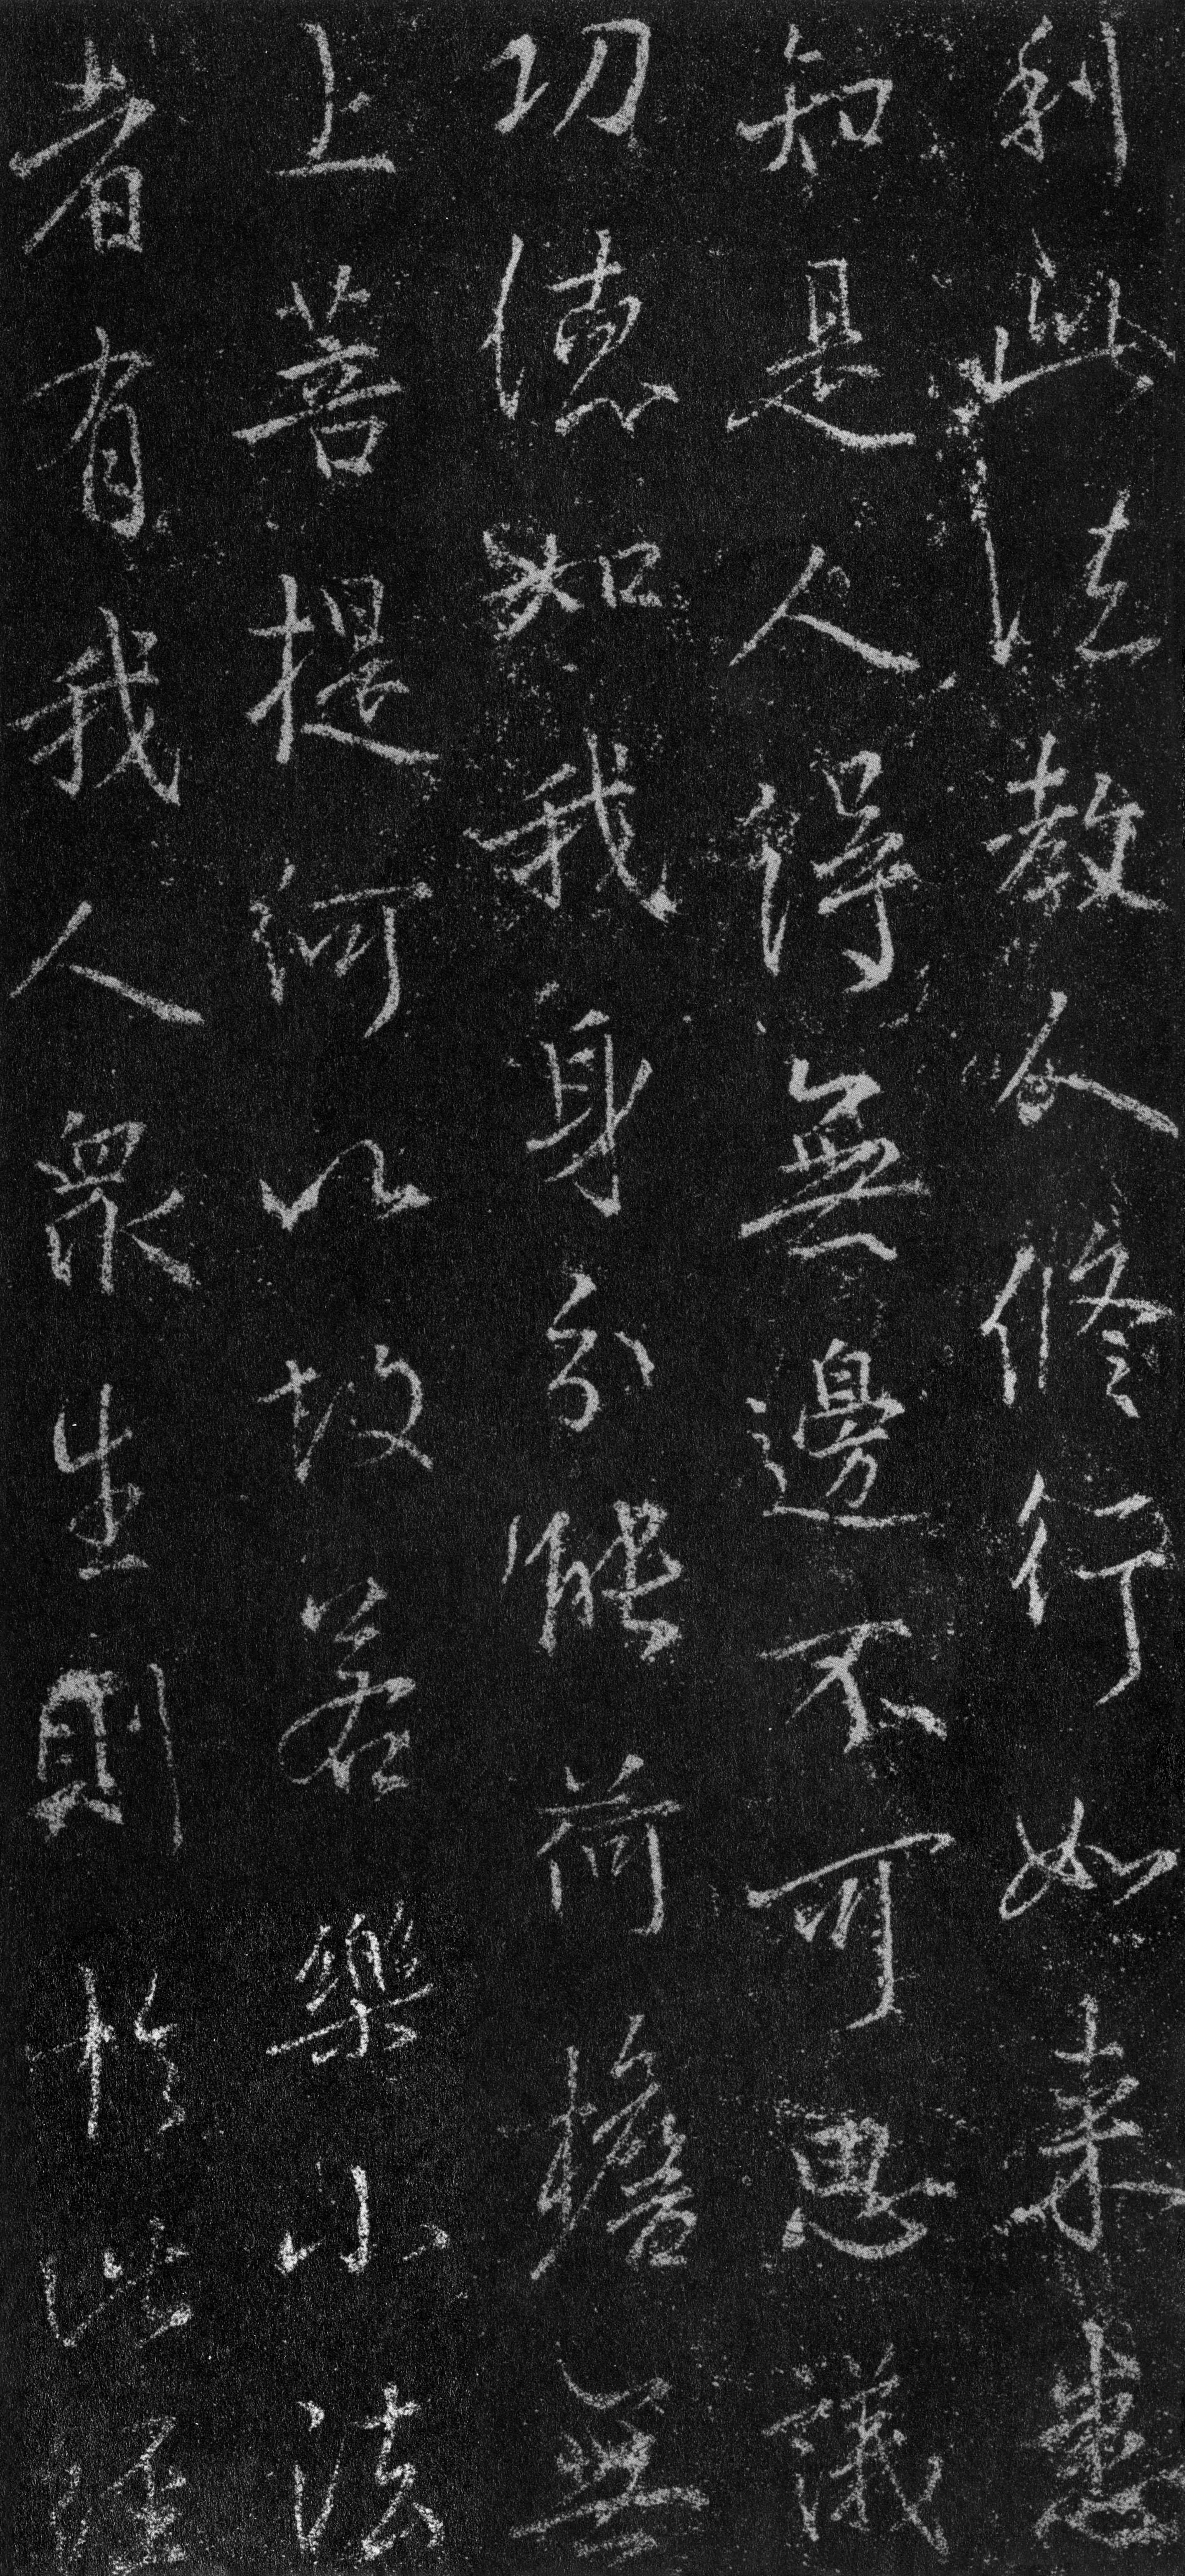 利此法教人修行如来悉
知是人得無邊不可思議
功德如我身分能荷擔無
上菩提何以故若樂小法
者有我人衆生則於此經